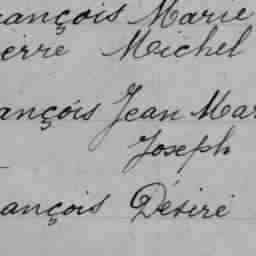 rançois Marie
ierre Michel
ançois Jean Mar
Joseph
ançois Désiré